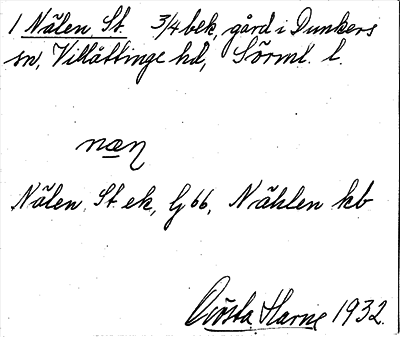 1 Nälen, St. 3/4 bek, gård i Dunkers
sn, Villåttinge hd, Sörml. l.
næn
Nälen, St. ek, G 66, Nählen kb
Gösta Harne 1932.